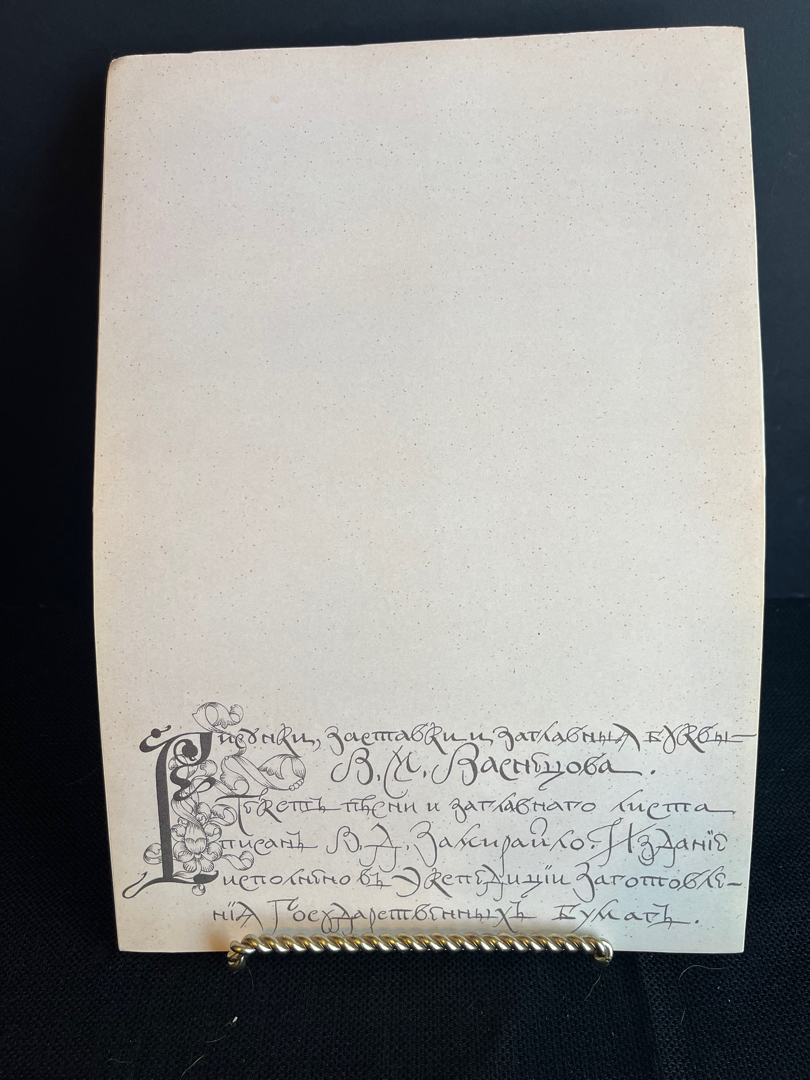 Рисунки, заставки и заглавныя буквы
В. М. Васнецова.
Текстъ пѣсни и заглавнаго листа
писанъ В. Д. Замирайло. Изданіе
исполнено въ Экспедиціи Заготовле-
нія Государственныхъ Бумагъ.